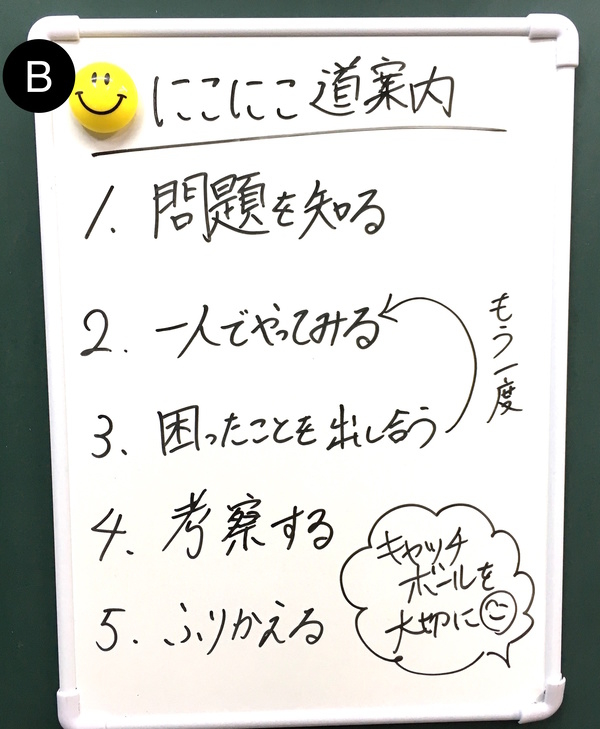 B
にこにこ道案内
1. 問題を知る
2. 一人でやってみる
もう一度
3. 困ったことを出し合う
4. 考察する
5. ふりかえる
キャッチ
ボールを
大切に